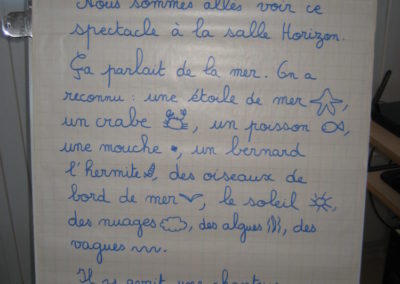 Nous sommes allés voir ce
spectacle à la salle Horizon.
Ça parlait de la mer. On a
reconnu : une étoile de mer ,
un crabe , un poisson ,
une mouche , un bernard
l'hermite , des oiseaux de
bord de mer , le soleil ,
des nuages , des algues , des
vagues .
Il y avait une chanteuse